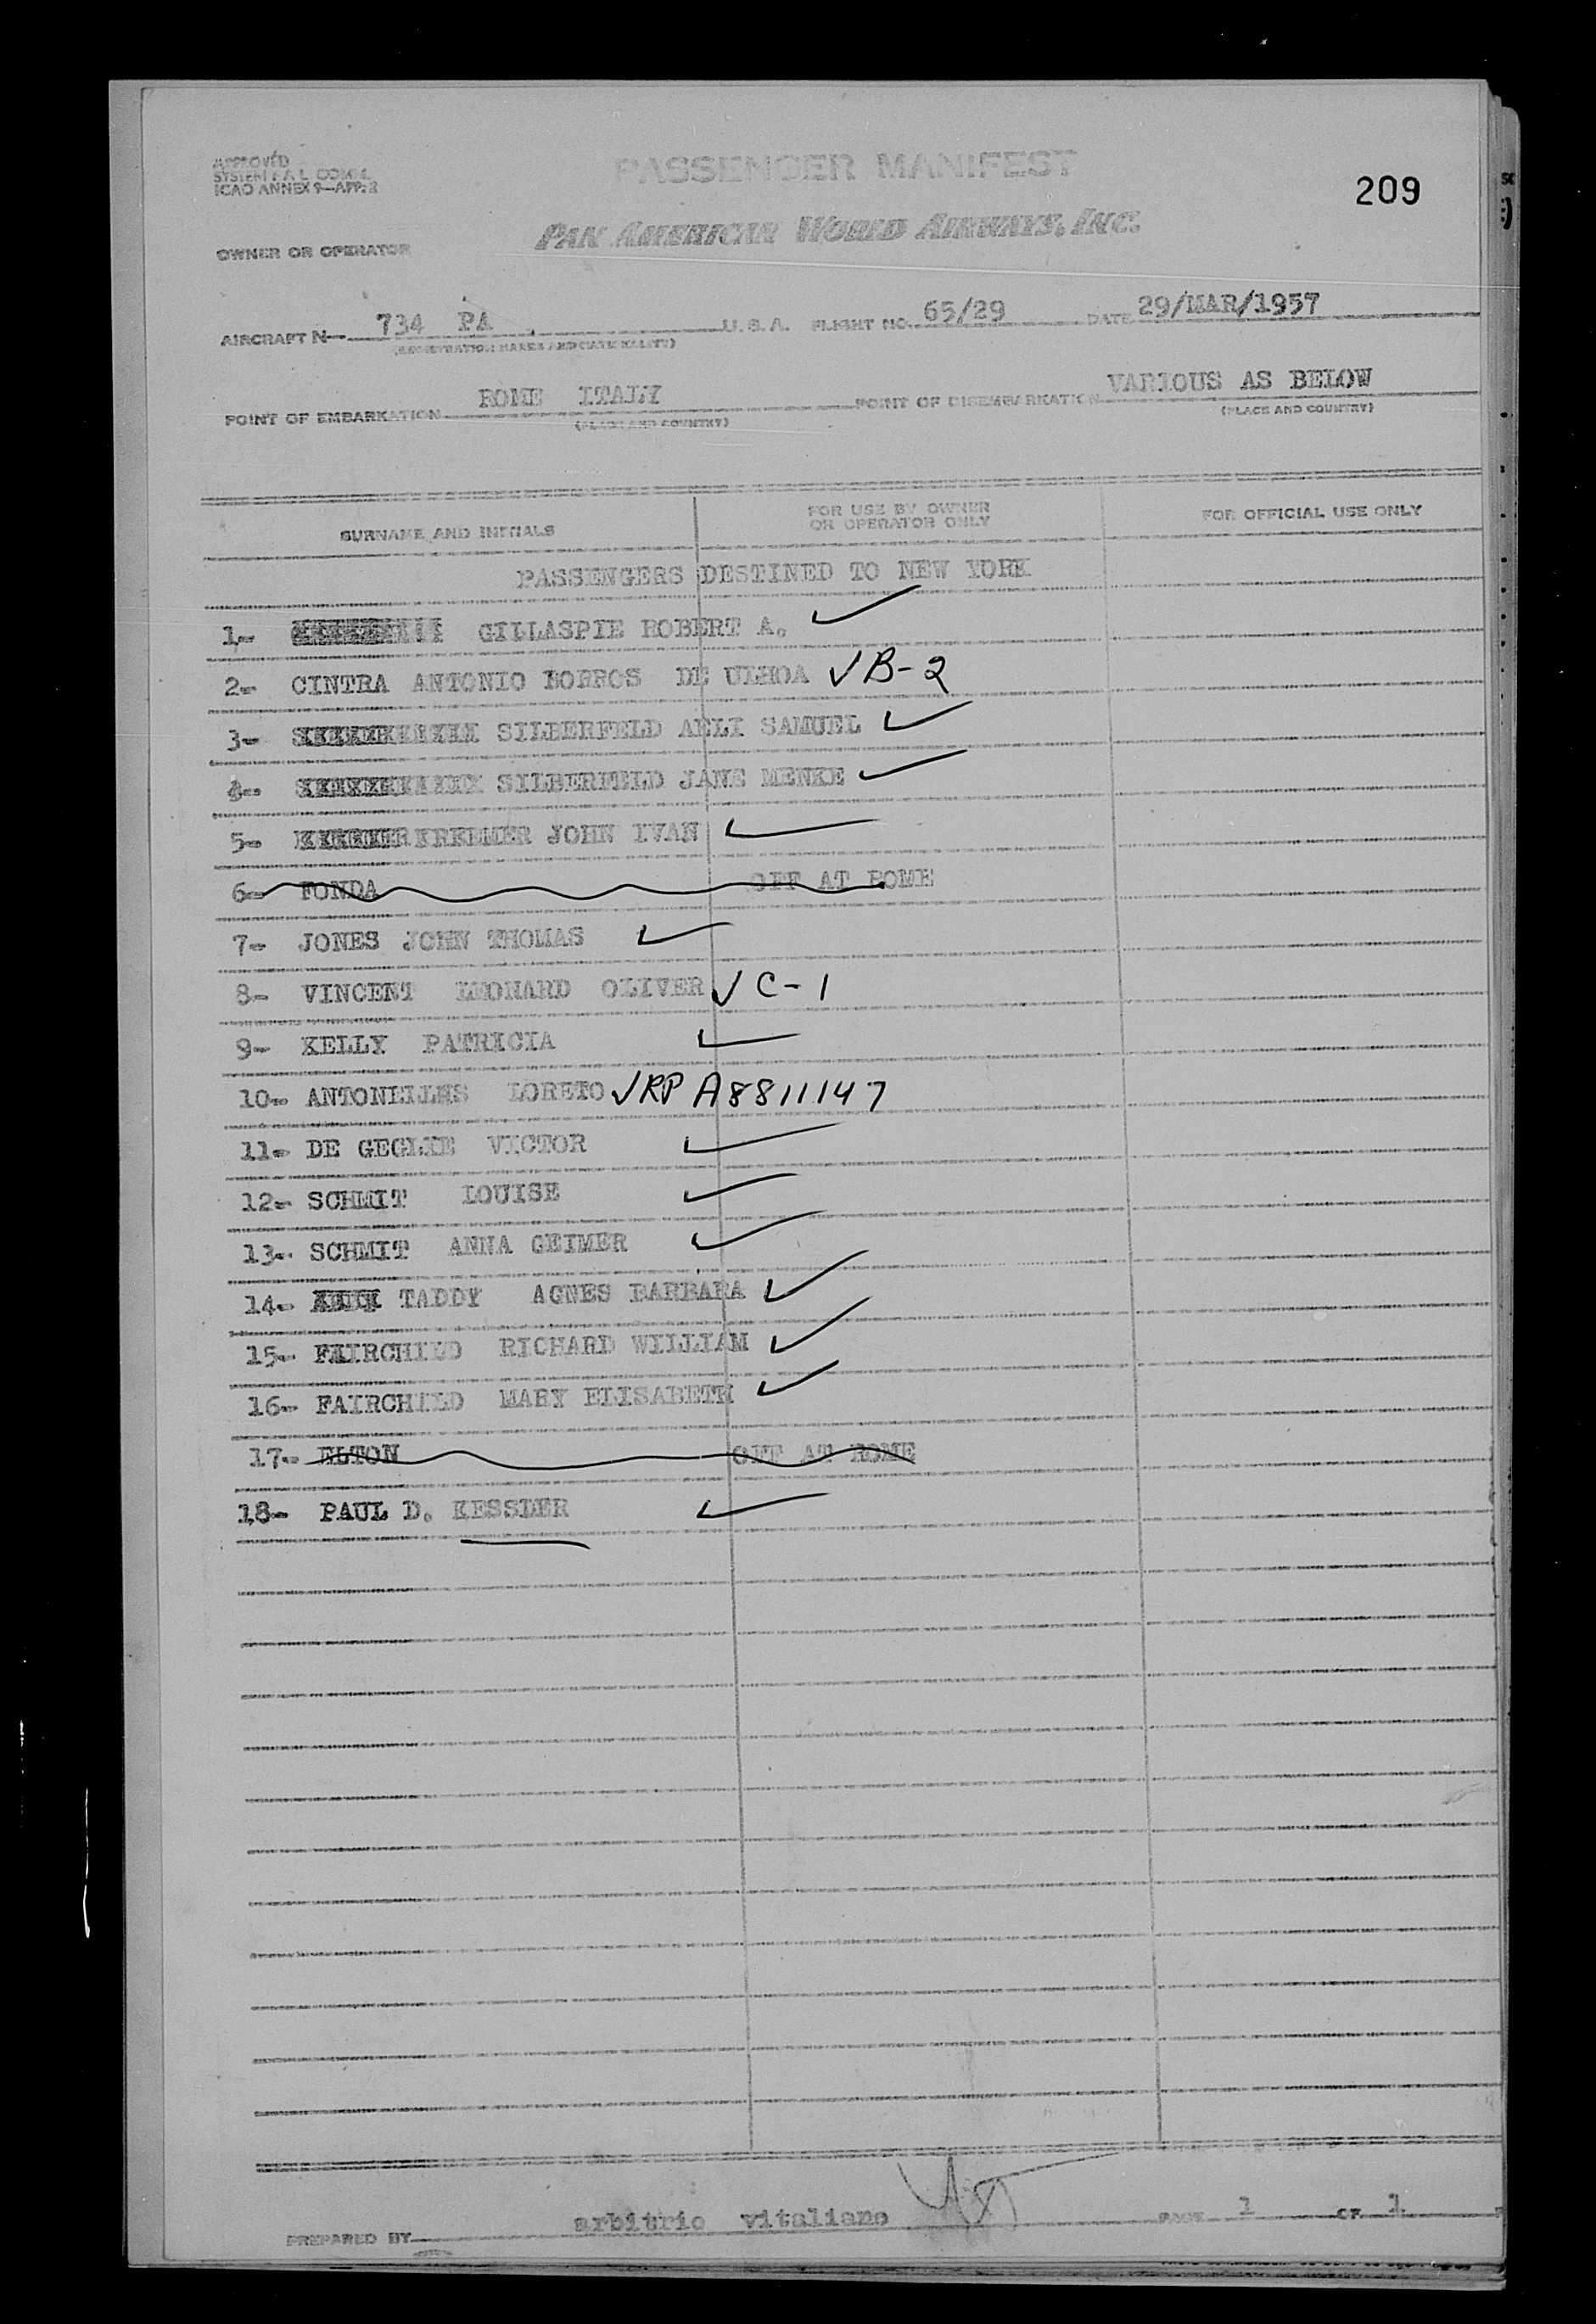 APPROVED
SYSTEM F A L COMM.
ICAO ANNEX 9—APP. 2
PASSENGER MANIFEST
209
OWNER OR OPERATOR
PAN AMERICAN WORLD AIRWAYS, INC.
AIRCRAFT N— 734 PA U. S. A. FLIGHT NO. 65/29 DATE 29/MAR/1957
(REGISTRATION MARKS AND NATIONALITY)
POINT OF EMBARKATION ROME ITALY POINT OF DISEMBARKATION VARIOUS AS BELOW
(PLACE AND COUNTRY) (PLACE AND COUNTRY)
SURNAME AND INITIALS FOR USE BY OWNER OR OPERATOR ONLY FOR OFFICIAL USE ONLY
PASSENGERS DESTINED TO NEW YORK
1- GILLASPIE ROBERT A. ✓
2- CINTRA ANTONIO BORROS DE ULHOA ✓ B-2
3- SILBERFELD SAMUEL ✓
4- SILBERFELD JANE MENKE ✓
5- KREEMER JOHN IVAN ✓
6- FONDA OFF AT ROME
7- JONES JOHN THOMAS ✓
8- VINCENT LEONARD OLIVER ✓ C-1
9- KELLY PATRICIA ✓
10- LORETO ✓ RP A8811147
11- DE GEGLIE VICTOR ✓
12- SCHMIT LOUISE ✓
13- SCHMIT ANNA GEIMER ✓
14- TADDY AGNES BARBARA ✓
15- FAIRCHILD RICHARD WILLIAM ✓
16- FAIRCHILD MARY ELISABETH ✓
17- ELTON OFF AT ROME
18- PAUL D. KESSLER ✓
PREPARED BY arbitrio vitaliano PAGE 1 OF 1